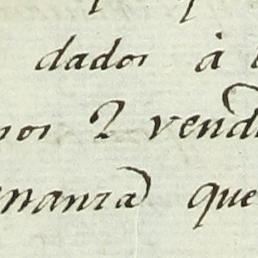 dados à
nos 2 vend
enanza que